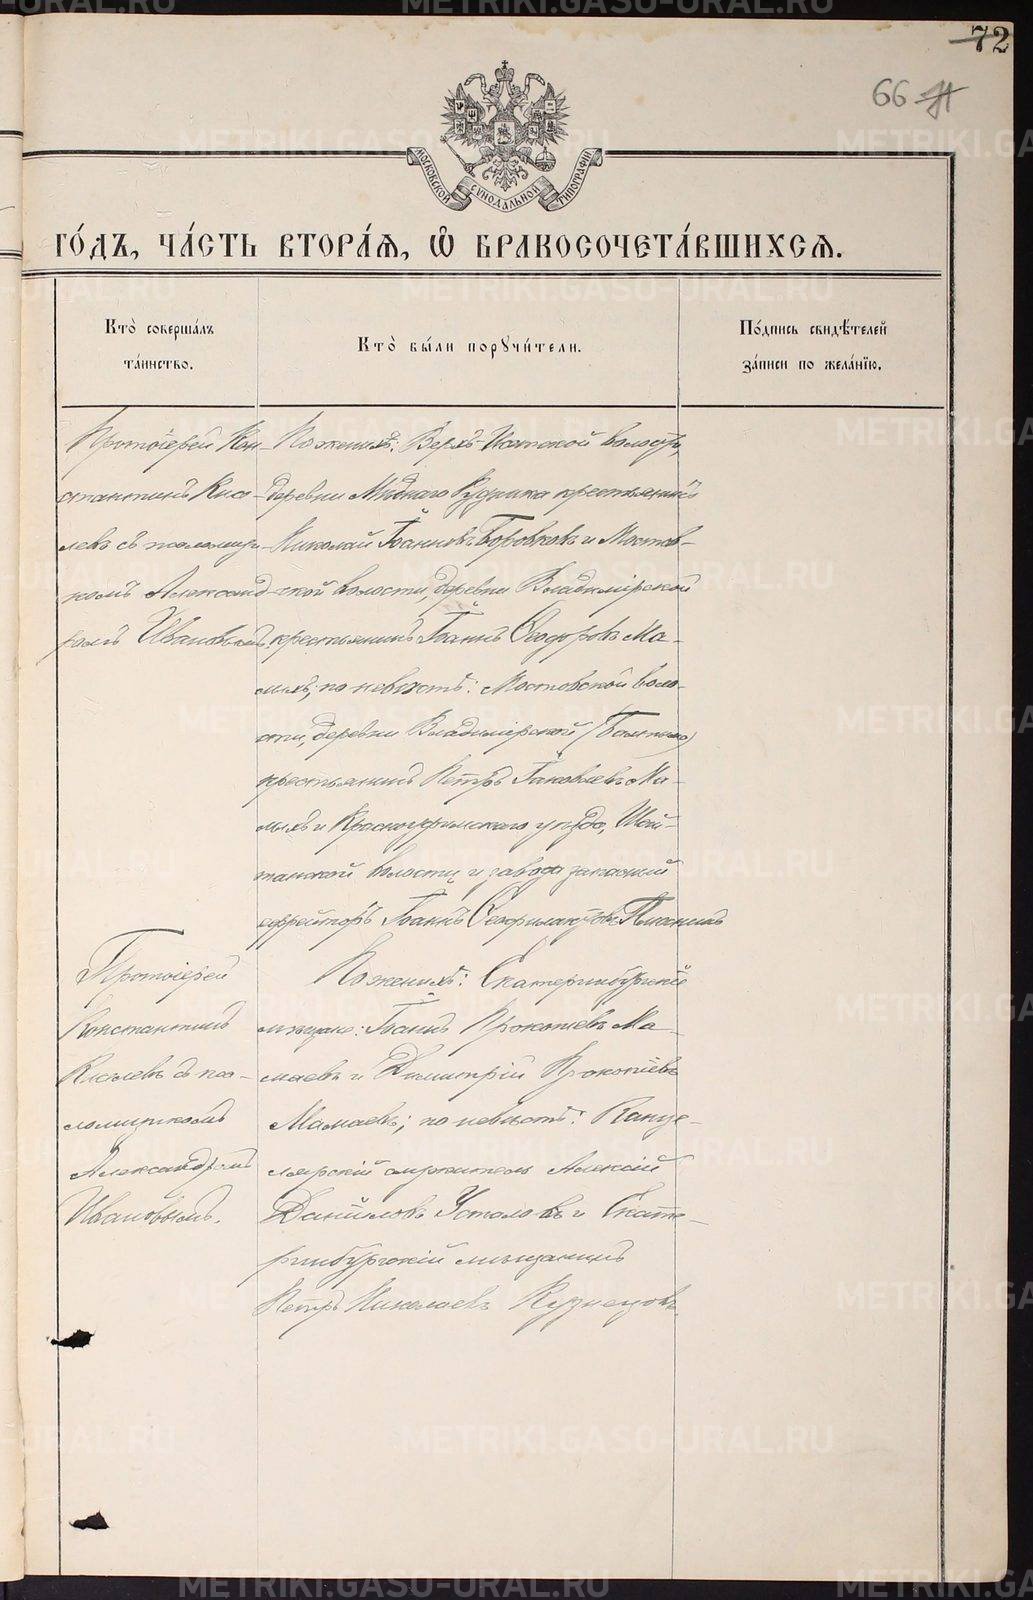 72
66 71
МОСКОВСКОЙ СѴНОДАЛЬНОЙ ТИПОГРАФІИ
ГО́ДЪ, ЧА́СТЬ ВТОРА́Я, Ѡ҆ БРАКОСОЧЕТА́ВШИХСЯ.
Кто̀ соверша́лъ
та́инство.
Кто̀ бы́ли порꙋчи́тели.
По́дпись свидѣ́телей
за́писи по жела́нїю.
Протоіерей Кон-
стантинъ Кисе-
левъ съ псаломщи-
комъ Александ-
ромъ Ивановымъ.
По женихѣ: Верхъ-Исетской волости,
деревни Мѣднаго Рудника крестьянинъ
Николай Іоанновъ Боровковъ и Мостов-
ской волости, деревни Владимірской
крестьянинъ Іоаннъ Ѳеодоровъ Ма-
лыхъ; по невѣстѣ: Мостовской воло-
сти, деревни Владимірской
крестьянинъ Петръ Іаковлевъ Ма-
лыхъ и Красноуфимскаго уѣзда, Шай-
танской волости и завода запасный
ефрейторъ Іоаннъ Ѳеофилактовъ
Протоіерей
Константинъ
Киселевъ съ пса-
ломщикомъ
Александромъ
Ивановымъ.
По женихѣ: Екатеринбургскіе
мѣщане: Іоаннъ Прокопіевъ Ма-
маевъ и Димитрій Прокопіевъ
Мамаевъ; по невѣстѣ: Канце-
лярскій служитель Алексій
Даніиловъ Усталовъ и Екате-
ринбургскій мѣщанинъ
Петръ Николаевъ Кузнецовъ.
METRIKI.GASO-URAL.RU